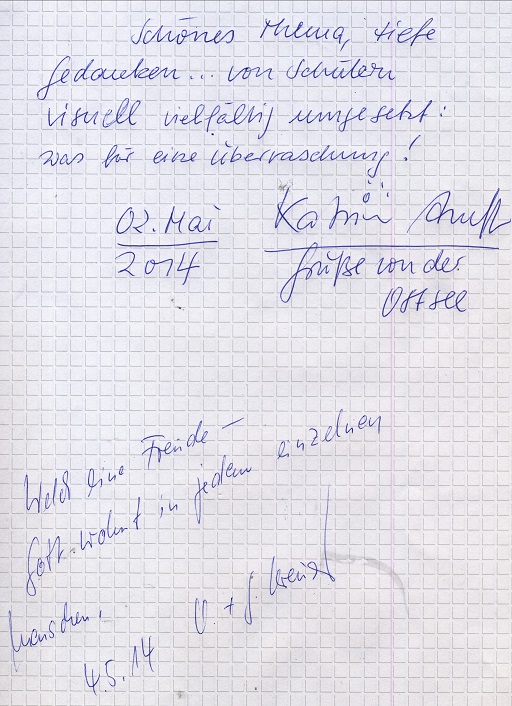 Schönes Thema, tiefe
Gedanken... von Schülern
visuell vielfältig umgesetzt:
was für eine Überraschung!
02. Mai
2014
Katrin
Grüße von der
Ostsee
Welch eine Freude –
Gott wohnt in jedem einzelnen
Menschen.
U. + G.
4.5.14